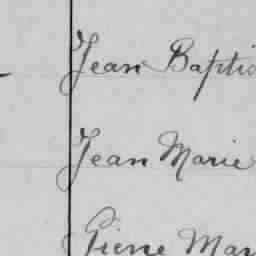 Jean Baptis
Jean Marie
Pierre Mar